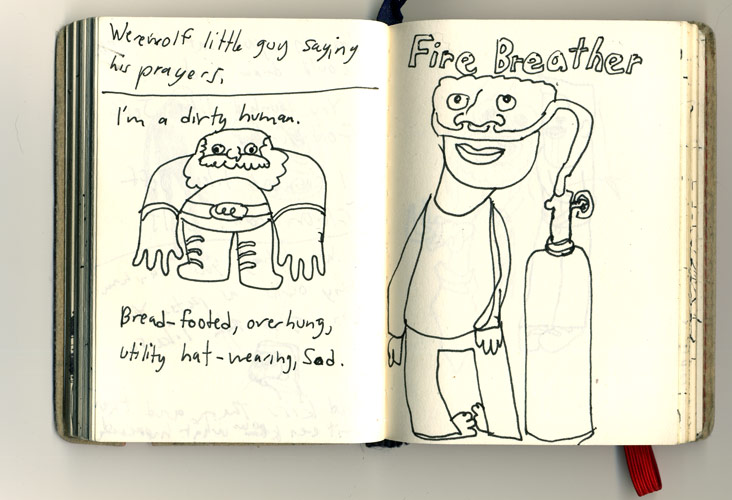 Werewolf little guy saying
his prayers.
I'm a dirty human.
Bread-footed, overhung,
utility hat-wearing, Sad.
Fire Breather